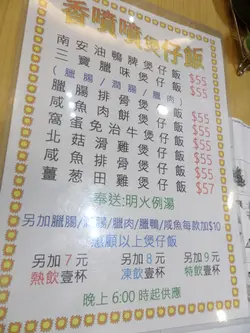 香噴噴煲仔飯
南安油鴨脾煲仔飯 $55
三寶臘味煲仔飯 $55
(臘腸/潤腸/臘肉)
臘腸排骨煲仔飯 $55
咸魚肉餅煲仔飯 $55
窩蛋免治牛煲仔飯 $55
北菇滑雞煲仔飯 $55
咸魚排骨煲仔飯 $55
薑葱田雞煲仔飯 $57
奉送:明火例湯
另加臘腸/潤腸/臘肉/臘鴨/咸魚每款加$10
惠顧以上煲仔飯
另加7元 另加8元 另加9元
熱飲壹杯 凍飲壹杯 特飲壹杯
晚上6:00時起供應